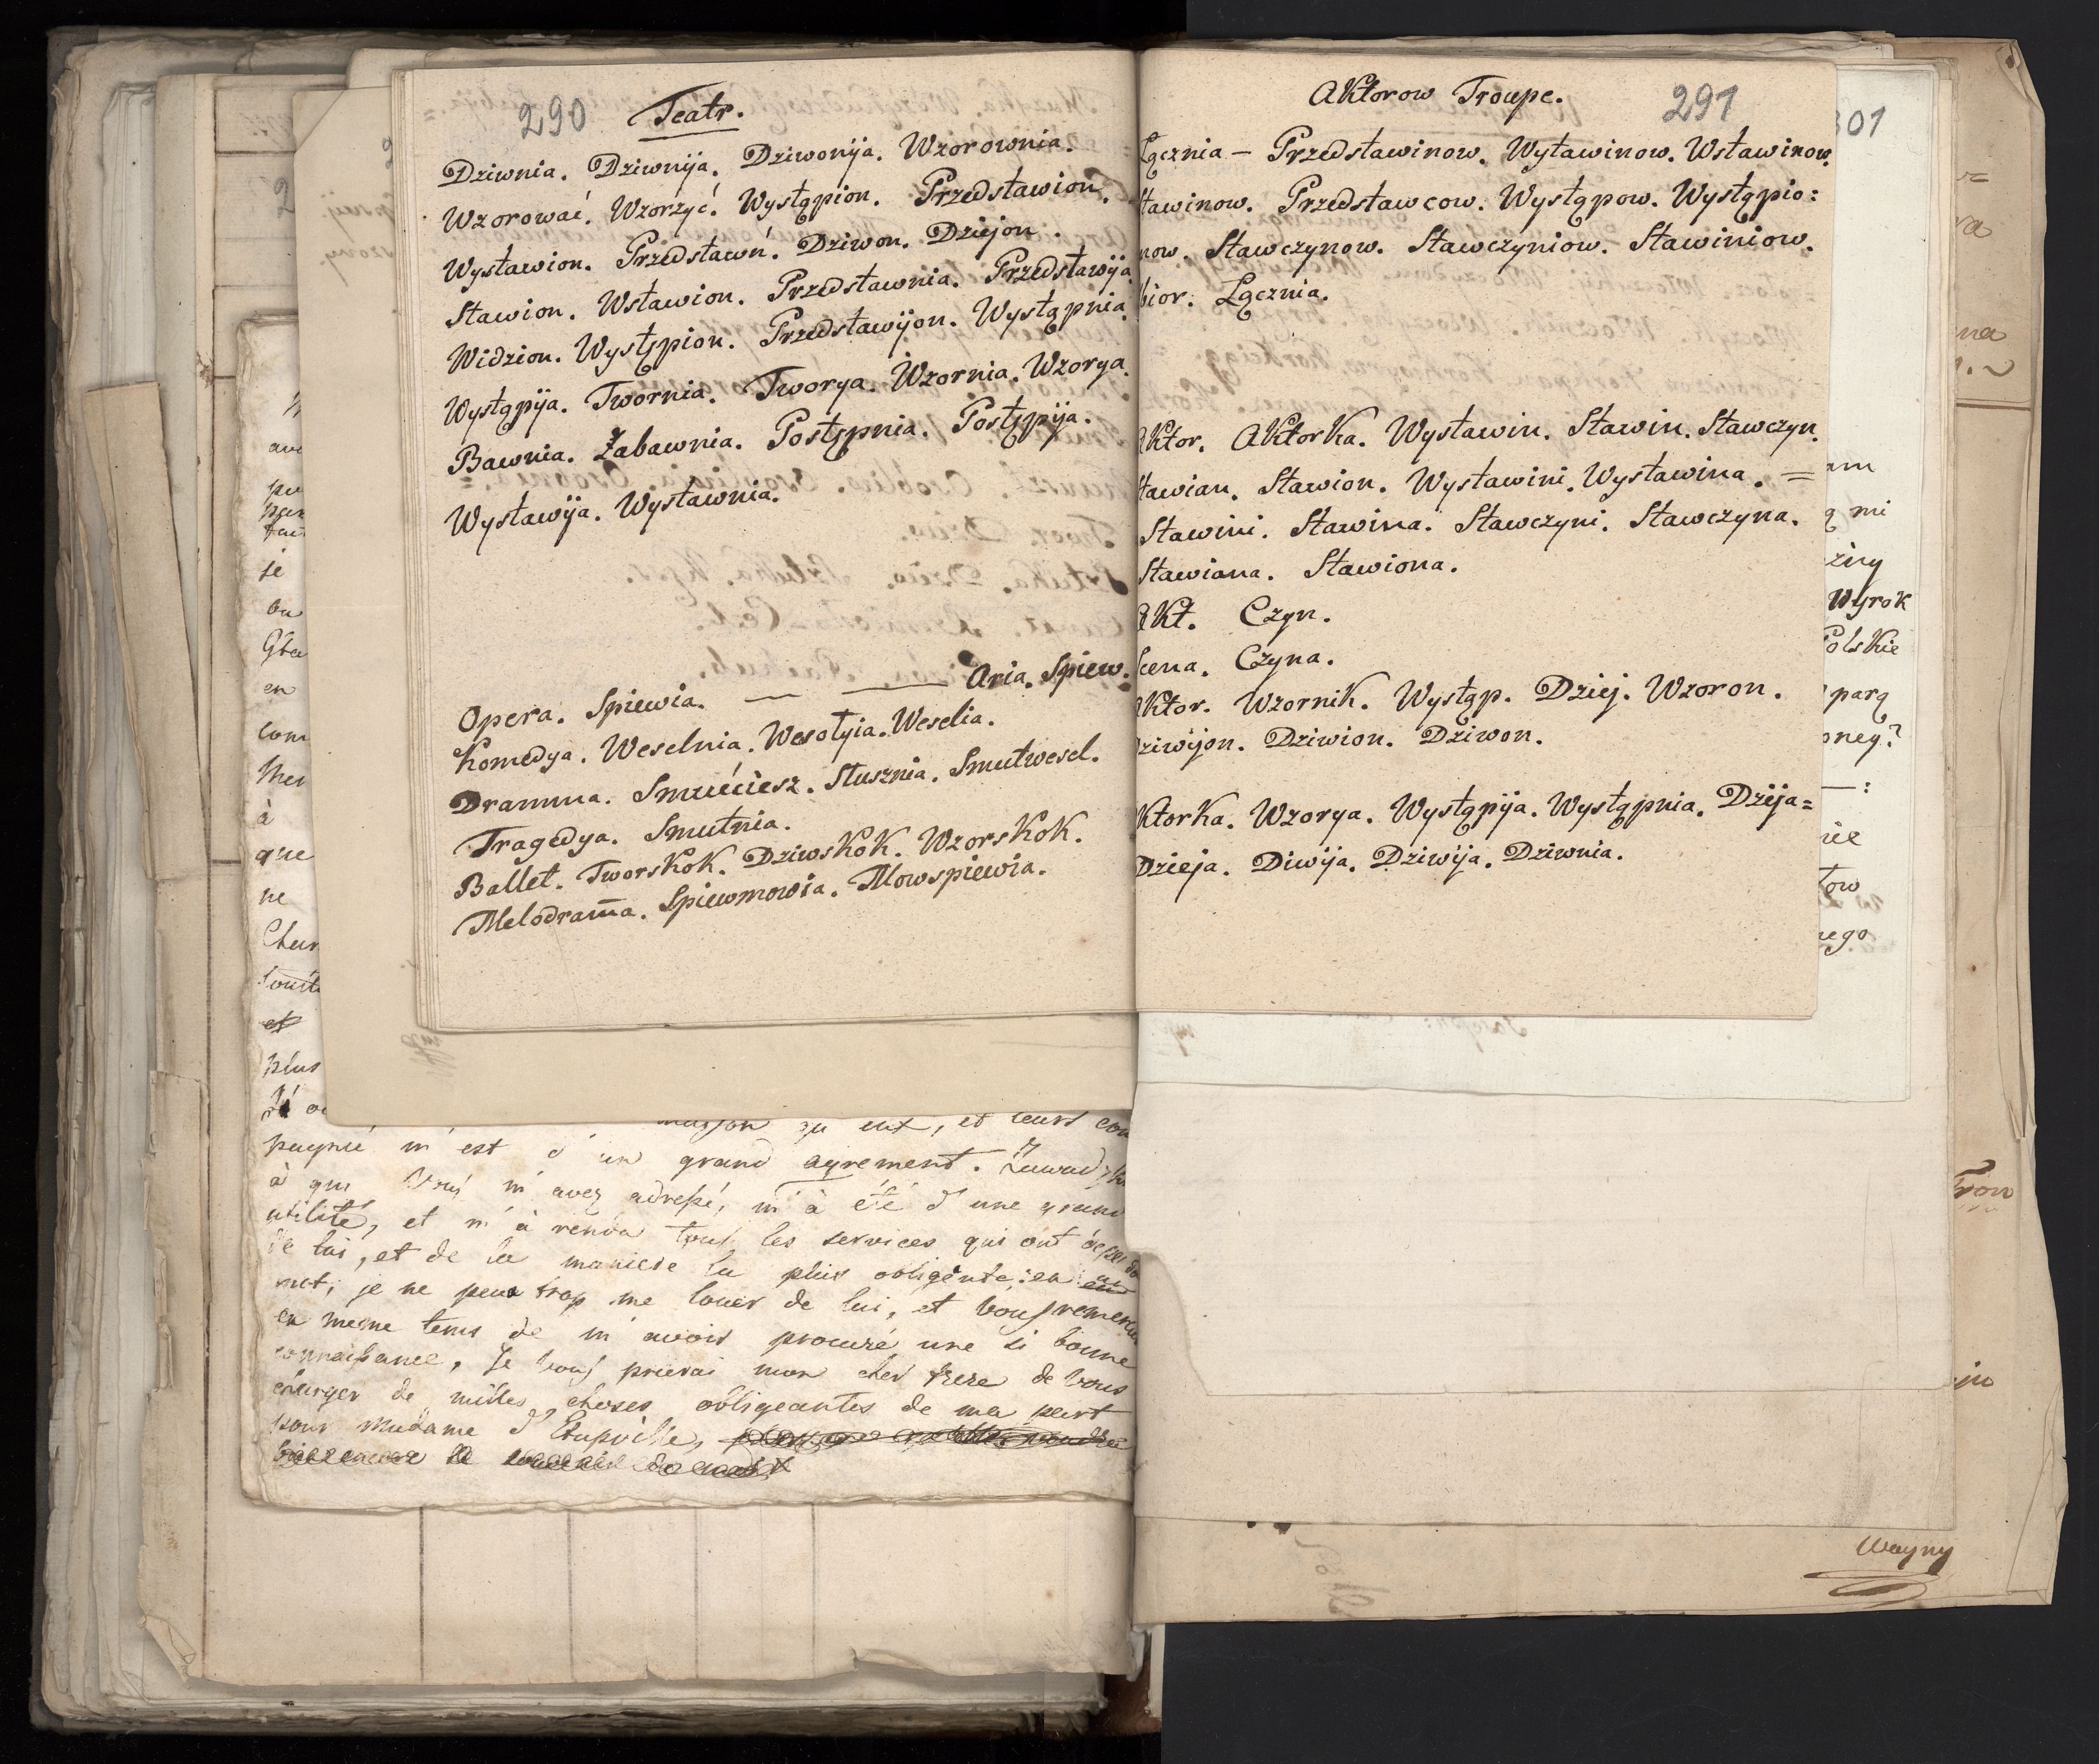 290 Teatr.
Dziwnia. Dziwnija. Dziwonija. Wzorownia.
Wzorować. Wzorzyć. Wystąpion. Przedstawion.
Wystawion. Przedstawń. Dziwon. Dziejon.
Stawion. Wstawion. Przedstawnia. Przedstawija
Widzion. Występion. Przedstawijon. Wystąpnia.
Wystąpija. Twornia. Tworya. Wzornia. Wzorya.
Bawnia. Zabawnia. Postępnia. Postępija.
Wystawija. Wystawnia.
Opera. Spiewia. — — Aria. Spiew.
Komedya. Weselnia. Wesołyia. Weselia.
Dramma. Smuciesz. Słusznia. Smutwesel.
Tragedya. Smutnia.
Ballet. Tworskok. Dziwskok. Wzorskok.
Melodram̄a. Spiewmowia. Mowspiewia.
Aktorow Troupe. 291
Łącznia — Przedstawinow. Wytawinow. Wstawinow.
tawinow. Przedstawcow. Wystąpow. Wystąpio:
now. Stawczynow. Stawczyniow. Stawiniow.
bior. Łącznia.
Aktor. Aktorka. Wystawin. Stawin. Stawczyn.
tawian. Stawion. Wystawini. Wystawina. =
Stawini. Stawina. Stawczyni. Stawczyna.
Stawiana. Stawiona.
Akt. Czyn.
cena. Czyna.
Aktor. Wzornik. Wystąp. Dziej. Wzoron.
ziwijon. Dziwion. Dziwon.
ktorka. Wzorya. Wystąpija. Wystąpnia. Dzieja=
Dzieja. Diwija. Dziwija. Dziwnia.
301
am
ą mi
ziny
Wyrok
Polskie
parą
oney?
— :
nie
tow
nego
na
Tron
Wayny
par
je
en
Gta
en
com
Mer
à
que
ne
et
plus
qu ent, et leurs com
m'est d'un grand agrement.
à qui Vous m'avez adressé, m'à été d'une grand
utilité, et m'à rendu tous les services qui ont
de lui, et de la maniere la plus obligente: en un
mot, je ne peux trop me louer de lui, et vous remerci
en meme tems de m'avoir procuré une si bonne
connaissance, Je vous prierai mon cher frere de vous
charger de milles choses obligeantes de ma part
pour Madame